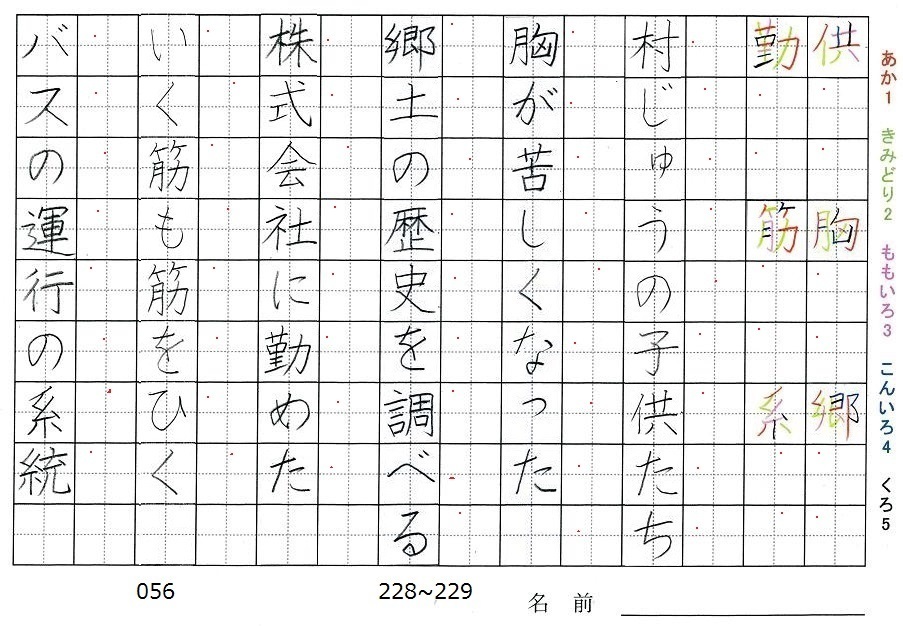 あか1 きみどり2 ももいろ3 こんいろ4 くろ5
供 胸 郷
勤 筋 系
村じゅうの子供たち
胸が苦しくなった
郷土の歴史を調べる
株式会社に勤めた
いく筋も筋をひく
バスの運行の系統
056
228~229
名前